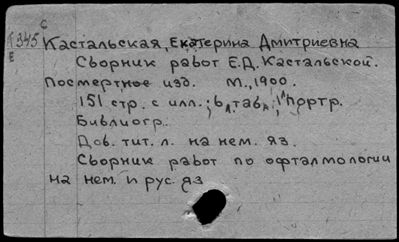 С
345 Кастальская, Екатерина Дмитриевна
Е
Сборник работ Е.Д. Кастальской.
Посмертное изд. М., 1900.
151 стр. с илл.; 6 л. табл. 1 портр.
Библиогр.
Доб. тит. л. на нем. яз.
Сборник работ по офталмологии
на нем. и рус. яз